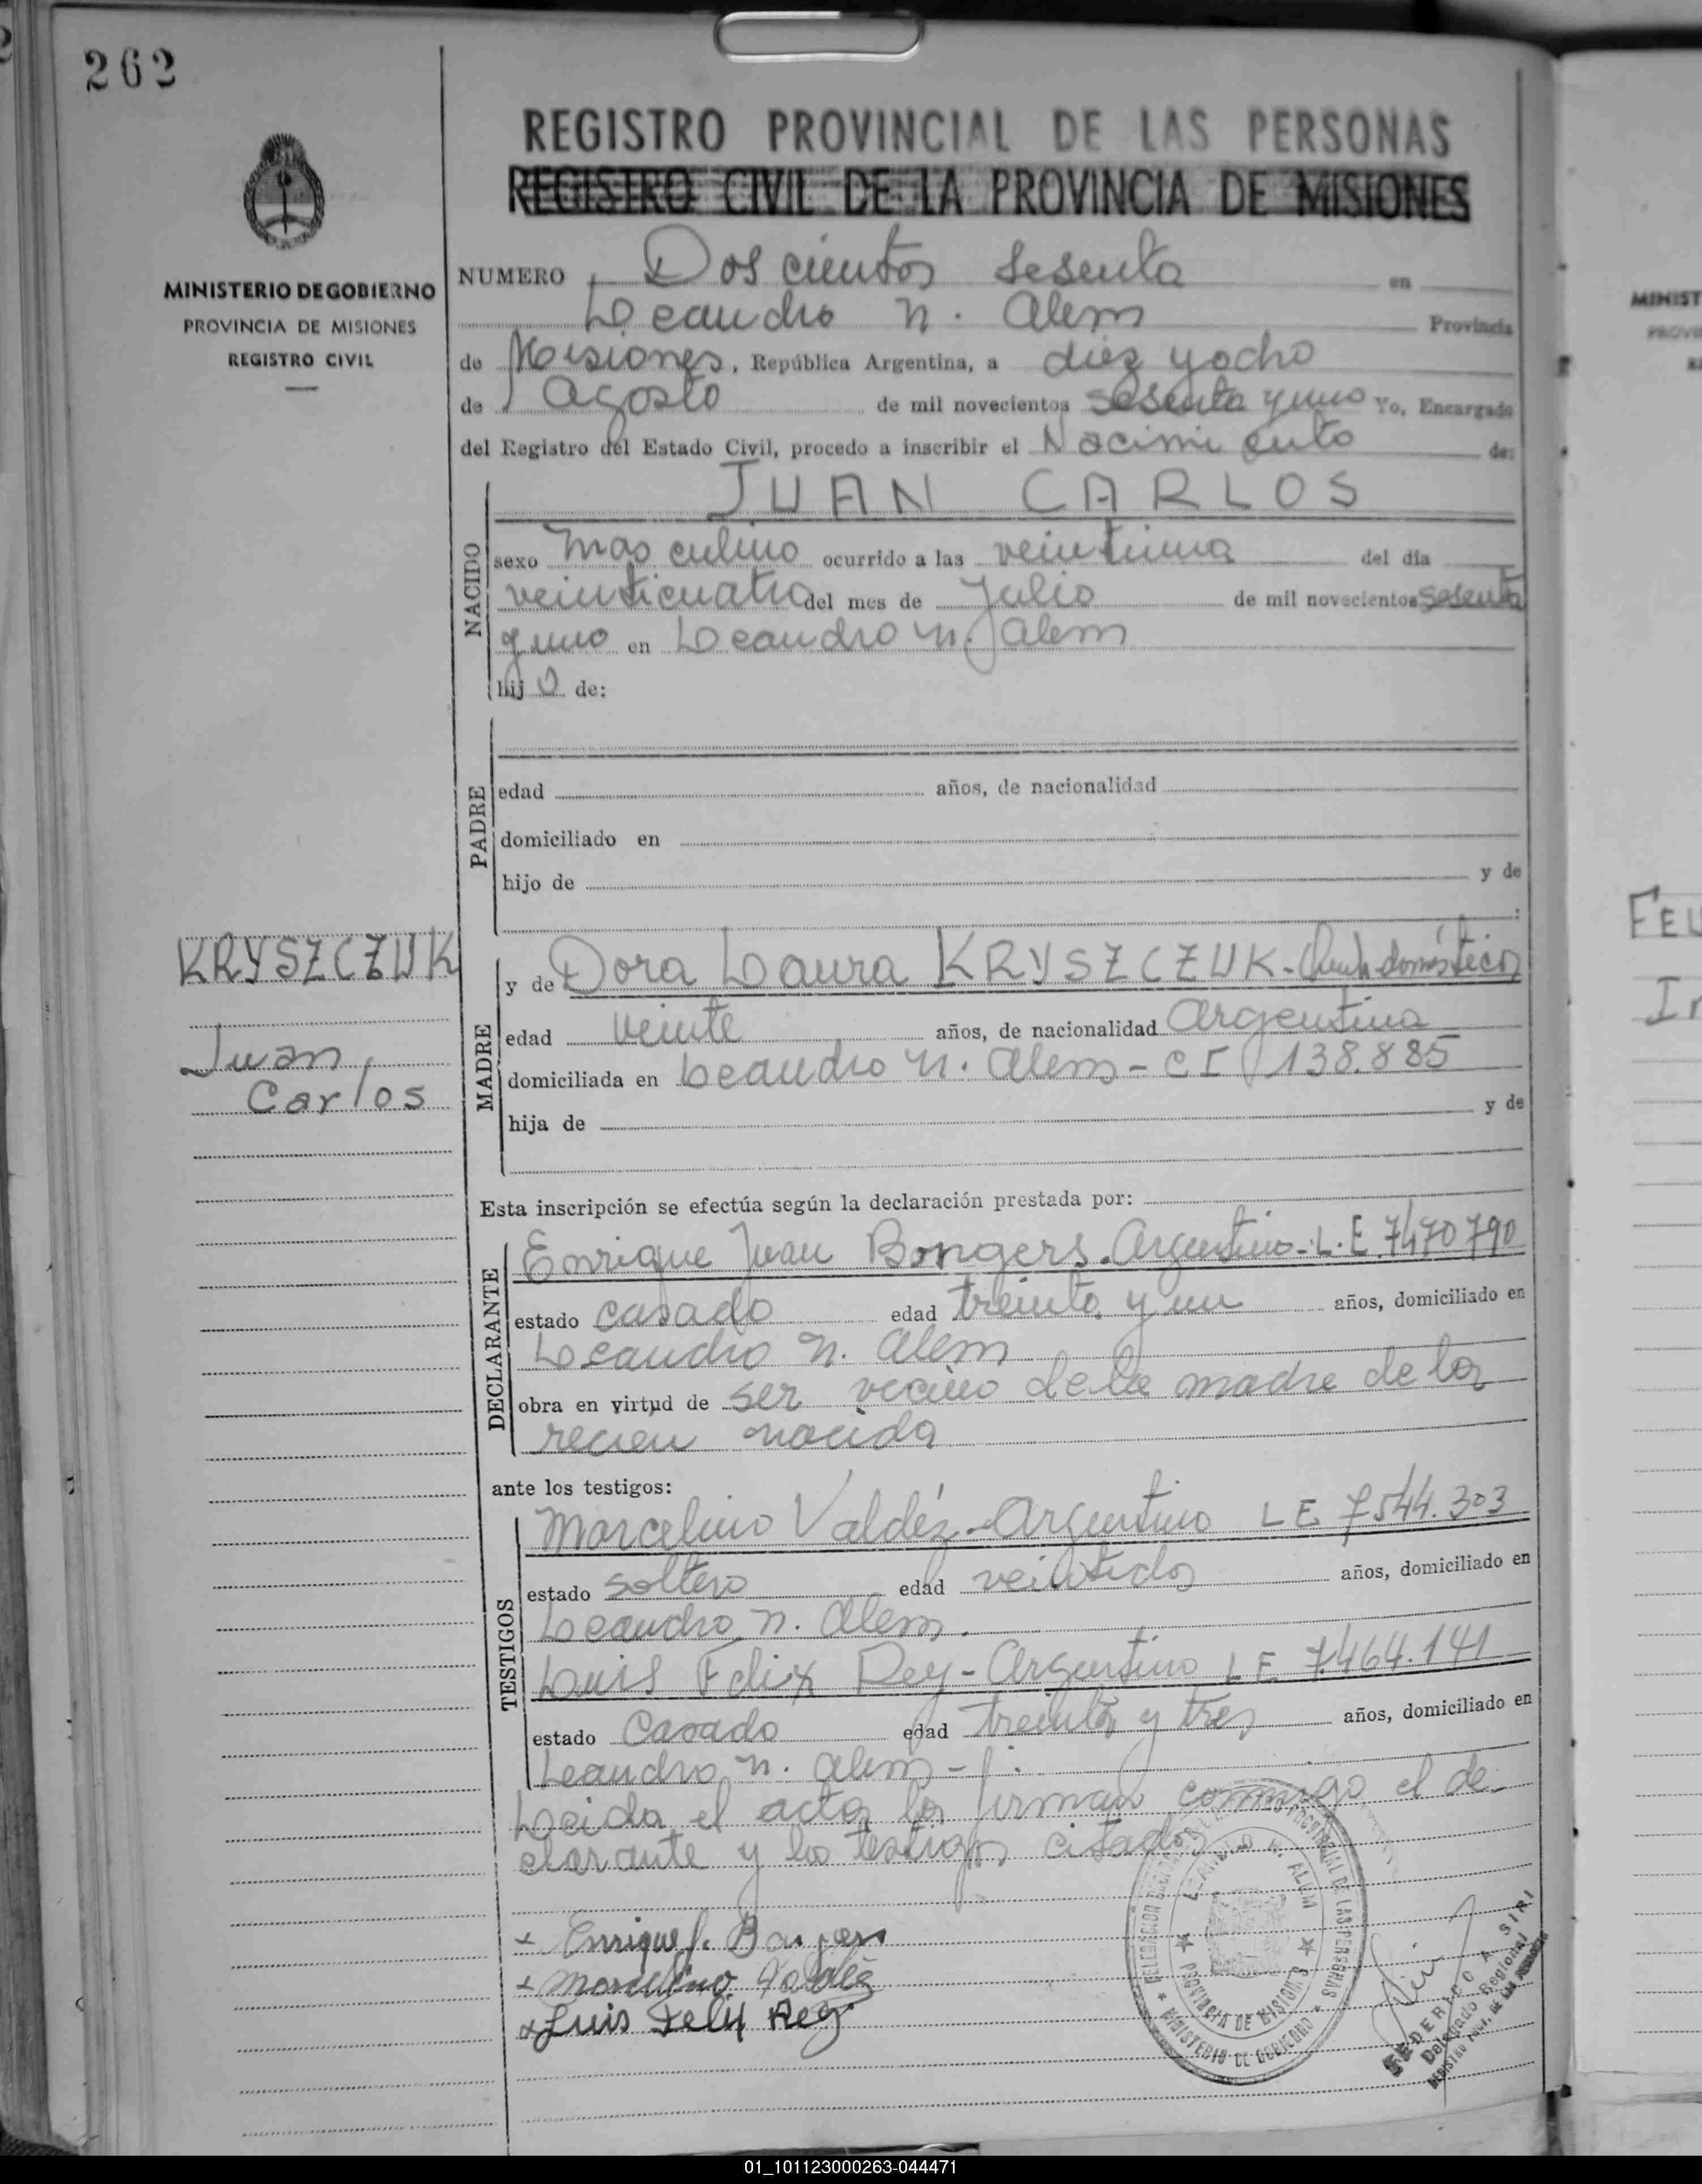 262
MINISTERIO DE GOBIERNO
PROVINCIA DE MISIONES
REGISTRO CIVIL
REGISTRO PROVINCIAL DE LAS PERSONAS
REGISTRO CIVIL DE LA PROVINCIA DE MISIONES
NUMERO Doscientos sesenta en
Leandro N. Alem Provincia
de Misiones, República Argentina, a diez y ocho
de Agosto de mil novecientos sesenta y uno Yo, Encargado
del Registro del Estado Civil, procedo a inscribir el Nacimiento de:
JUAN CARLOS
NACIDO
sexo masculino ocurrido a las veintiuna del día
veinticuatro del mes de Julio de mil novecientos sesenta
y uno en Leandro N. Alem
hijo de:
PADRE
edad años, de nacionalidad
domiciliado en
hijo de y de
:
KRYSZCZUK
Juan
Carlos
MADRE
y de Dora Laura KRYSZCZUK - doméstica
edad veinte años, de nacionalidad Argentina
domiciliada en Leandro N. Alem - CI 138.885
hija de y de
Esta inscripción se efectúa según la declaración prestada por:
DECLARANTE
Enrique Juan Bongers. Argentino - L.E. 7470790
estado casado edad treinta y un años, domiciliado en
Leandro N. Alem
obra en virtud de ser vecino de la madre de la
recien nacida
ante los testigos:
TESTIGOS
Marcelino Valdéz - Argentino LE 7544.303
estado soltero edad veintidos años, domiciliado en
Leandro N. Alem.
Luis Felix Rey - Argentino LE 7.464.141
estado casado edad treinta y tres años, domiciliado en
Leandro N. Alem -
Leida el acta la firman conmigo el de-
clarante y los testigos citados
Enrique J. Bongers
Marcelino Valdéz
Luis Felix Rey
LEANDRO N. ALEM
PROVINCIA DE MISIONES
MINISTERIO DE GOBIERNO
FEDERICO A. SIRI
Delegado Regional
MINIST
FEL
01_101123000263-044471